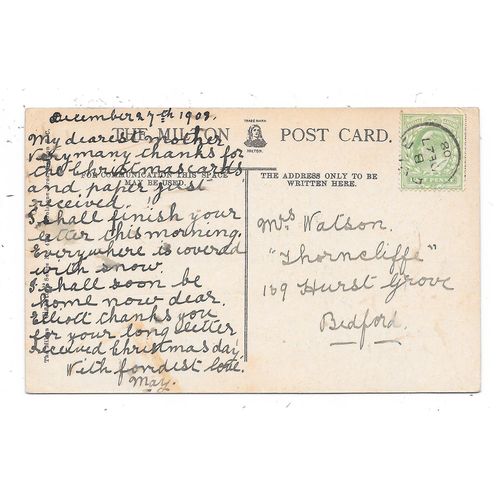 December 27th 1908.
THE MILTON POST CARD.
TRADE MARK
MILTON.
My dearest mother
Very many thanks for
the Christmas cards
FOR COMMUNICATION THIS SPACE
MAY BE USED.
and paper just
received.
I shall finish your
letter this morning.
Everywhere is covered
with snow.
I shall soon be
home now dear.
Elliott thanks you
for your long letter
received Christmas day
With fondest love.
May.
THE ADDRESS ONLY TO BE
WRITTEN HERE.
Mrs Watson.
"Thorncliffe"
159 Hurst Grove
Bedford.